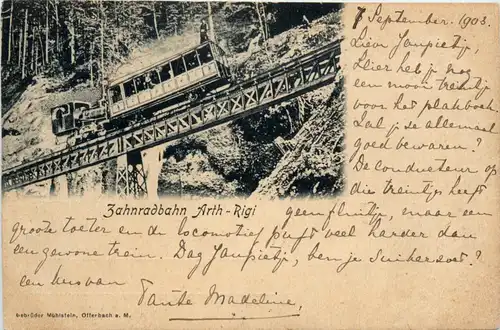 7 September. 1903.
Lieve Janpietje,
Hier heb je nog
een mooi treintje
voor het plakboek.
Zal je ze allemaal
goed bewaren?
De conducteur op
die treintjes heeft
Zahnradbahn Arth-Rigi
geen fluitje, maar een
groote toeter en de locomotief puft veel harder dan
een gewone trein. Dag Janpietje, ben je Suikerzoet?
een kus van
Tante Madeline.
Gebrüder Mühlstein, Offenbach a. M.